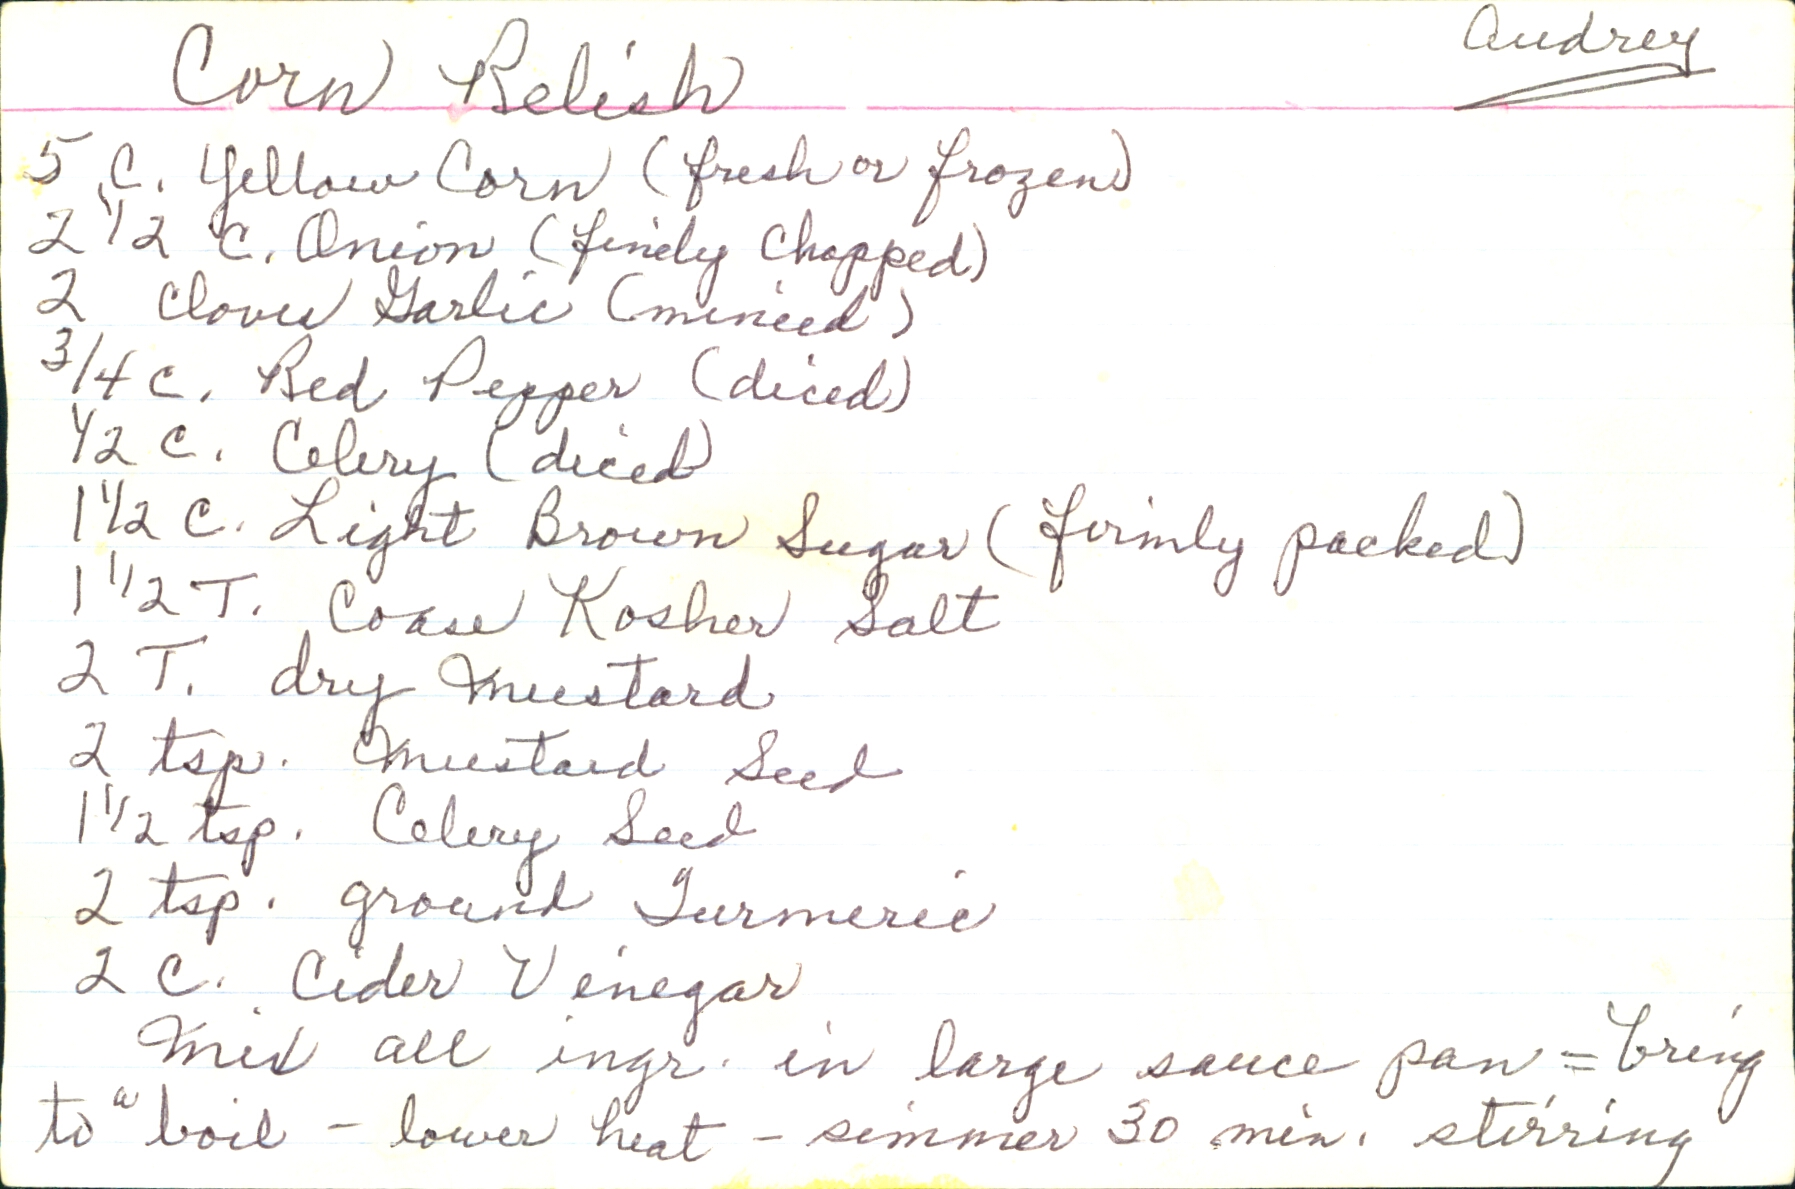 Corn Relish
Audrey
5 C. Yellow Corn (fresh or frozen)
2 1/2 C. Onion (finely Chopped)
2 Cloves Garlic (minced)
3/4 C. Red Pepper (diced)
1/2 C. Celery (diced)
1 1/2 C. Light Brown Sugar (firmly packed)
1 1/2 T. Coase Kosher Salt
2 T. dry Mustard
2 tsp. Mustard Seed
1 1/2 tsp. Celery Seed
2 tsp. ground Turmeric
2 C. Cider Vinegar
Mix all ingr. in large sauce pan = bring
to a boil - lower heat - simmer 30 min. stirring